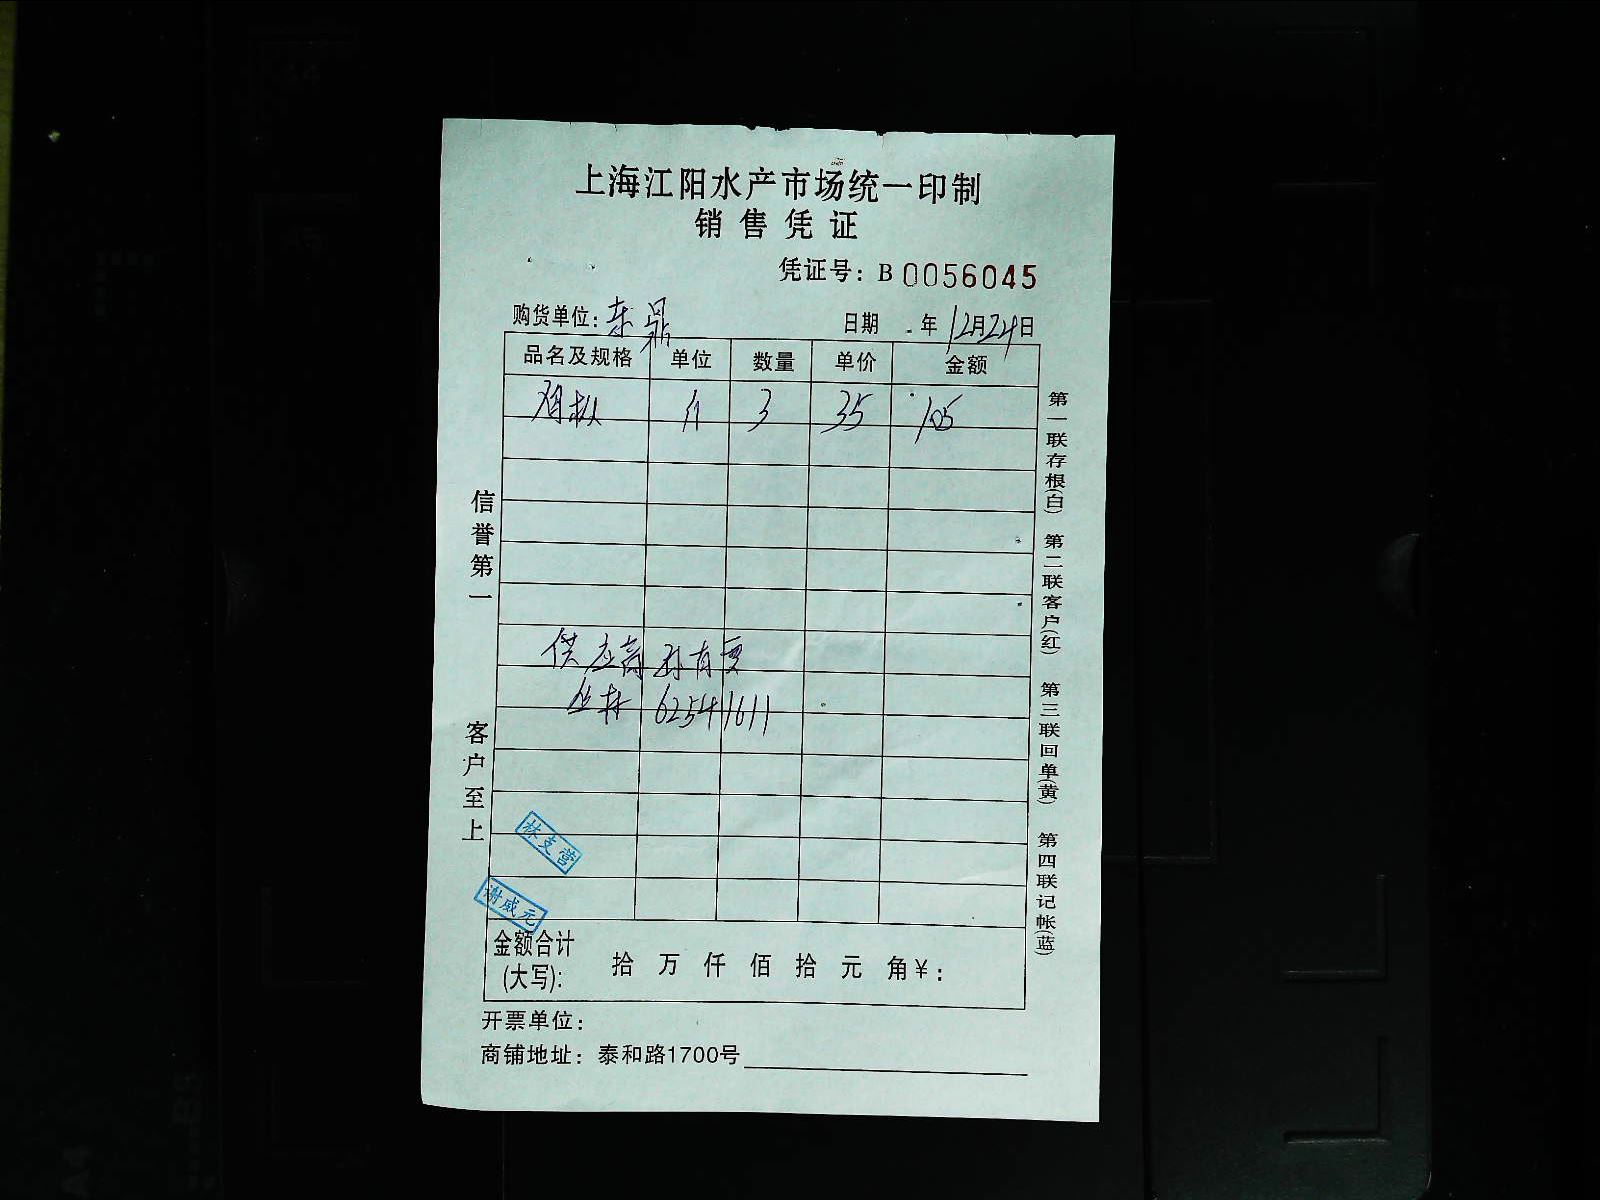 上海江阳水产市场统一印制
销售凭证
凭证号：B 0056045
购货单位：东鼎 日期 年12月24日
品名及规格 单位 数量 单价 金额
鸡枞 斤 3 35 105
供应商 孙有
6254 1611
信誉第一
客户至上
第一联存根(白) 第二联客户(红) 第三联回单(黄) 第四联记帐(蓝)
林支营
谢威元
金额合计
(大写): 拾 万 仟 佰 拾 元 角¥：
开票单位：
商铺地址：泰和路1700号